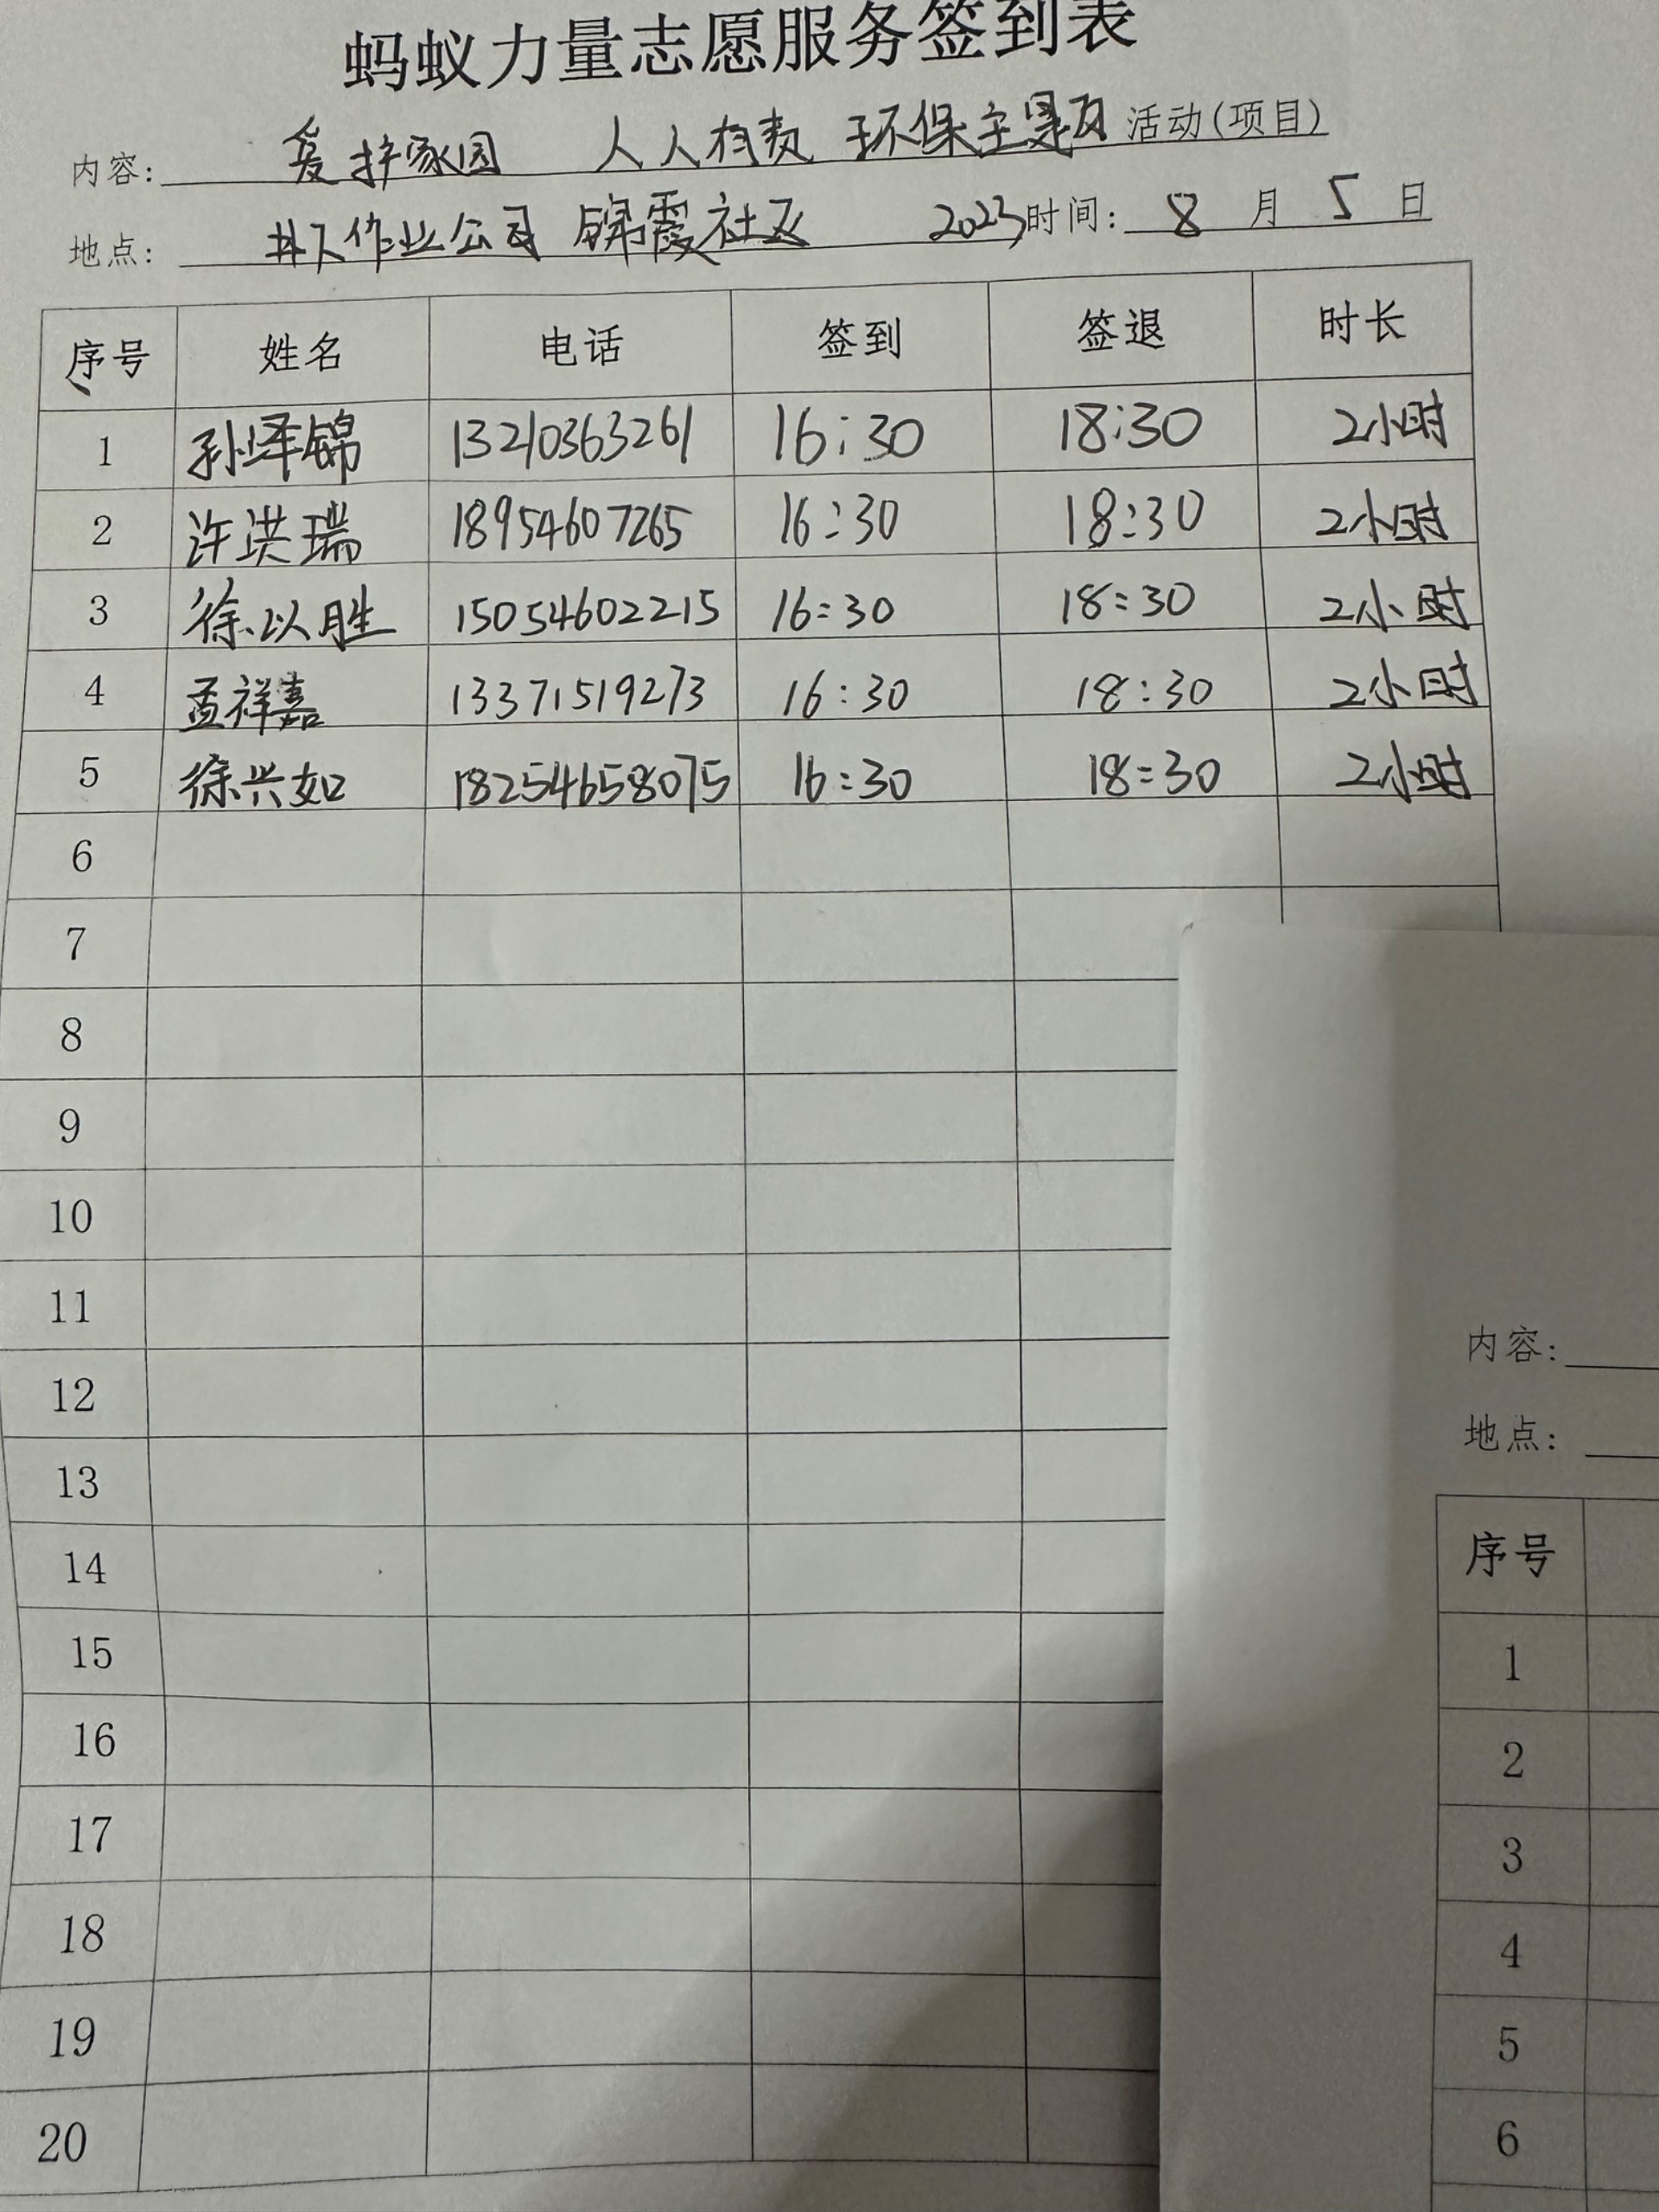 蚂蚁力量志愿服务签到表
内容: 爱护家园 人人有责 环保主题 活动(项目)
地点: 井下作业公司 锦霞社区 2023时间: 8 月 5 日
序号 姓名 电话 签到 签退 时长
1 孙泽锦 13210363261 16:30 18:30 2小时
2 许洪瑞 18954607265 16:30 18:30 2小时
3 徐以胜 15054602215 16:30 18:30 2小时
4 孟祥嘉 13371519273 16:30 18:30 2小时
5 徐兴如 18254658075 16:30 18:30 2小时
6
7
8
9
10
11
12
13
14
15
16
17
18
19
20
内容:
地点:
序号
1
2
3
4
5
6